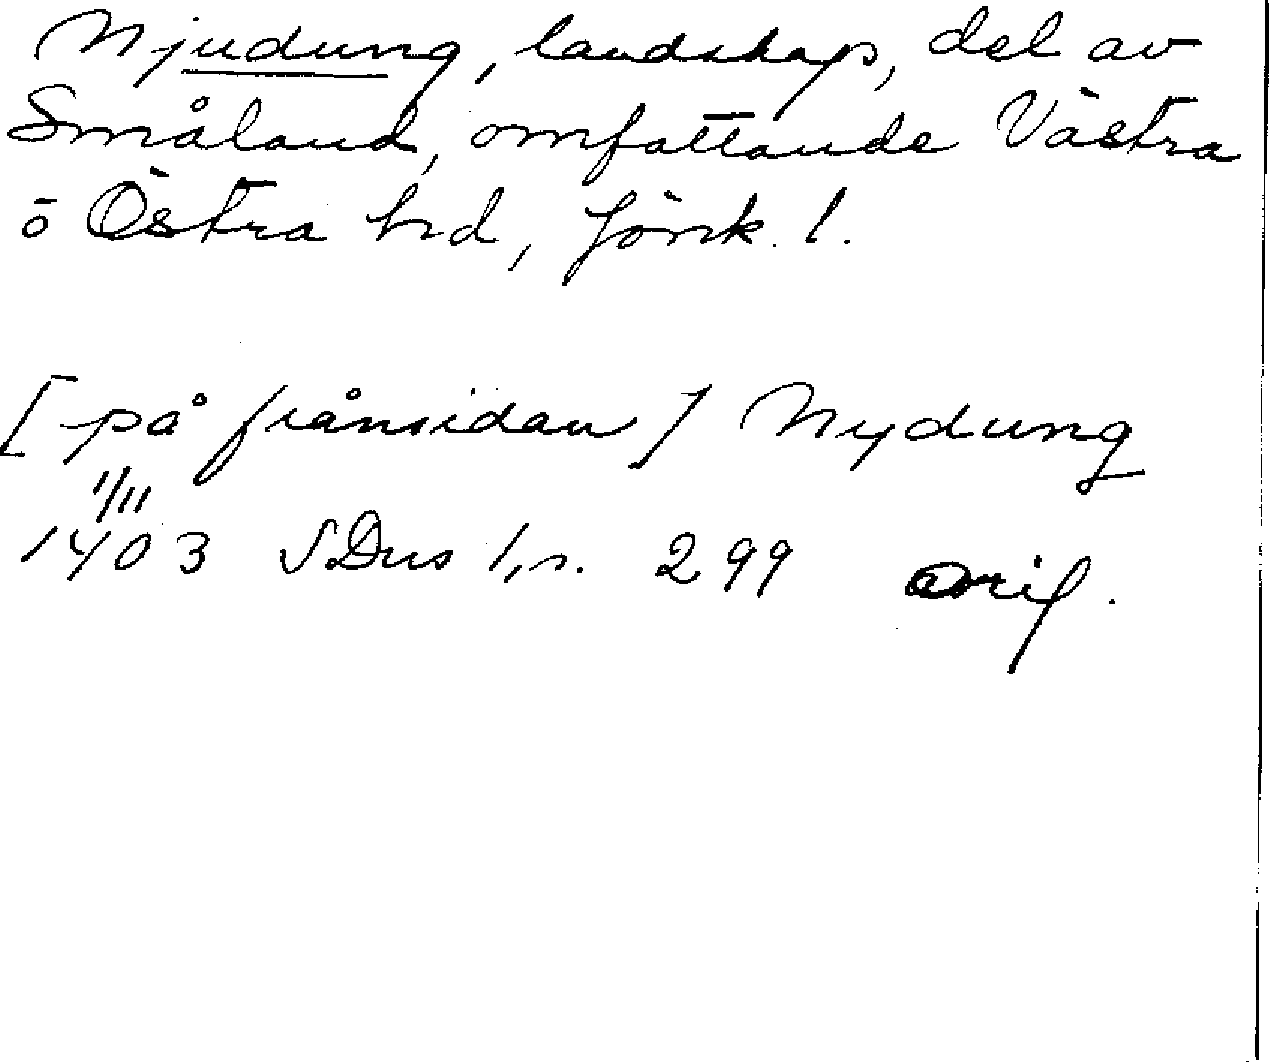 Njudung, landskap, del av
Småland, omfattande Västra
o Östra hd, Jönk. l.
[på frånsidan] Nydung
1/11
1403 SDns 1, s. 299 orig.